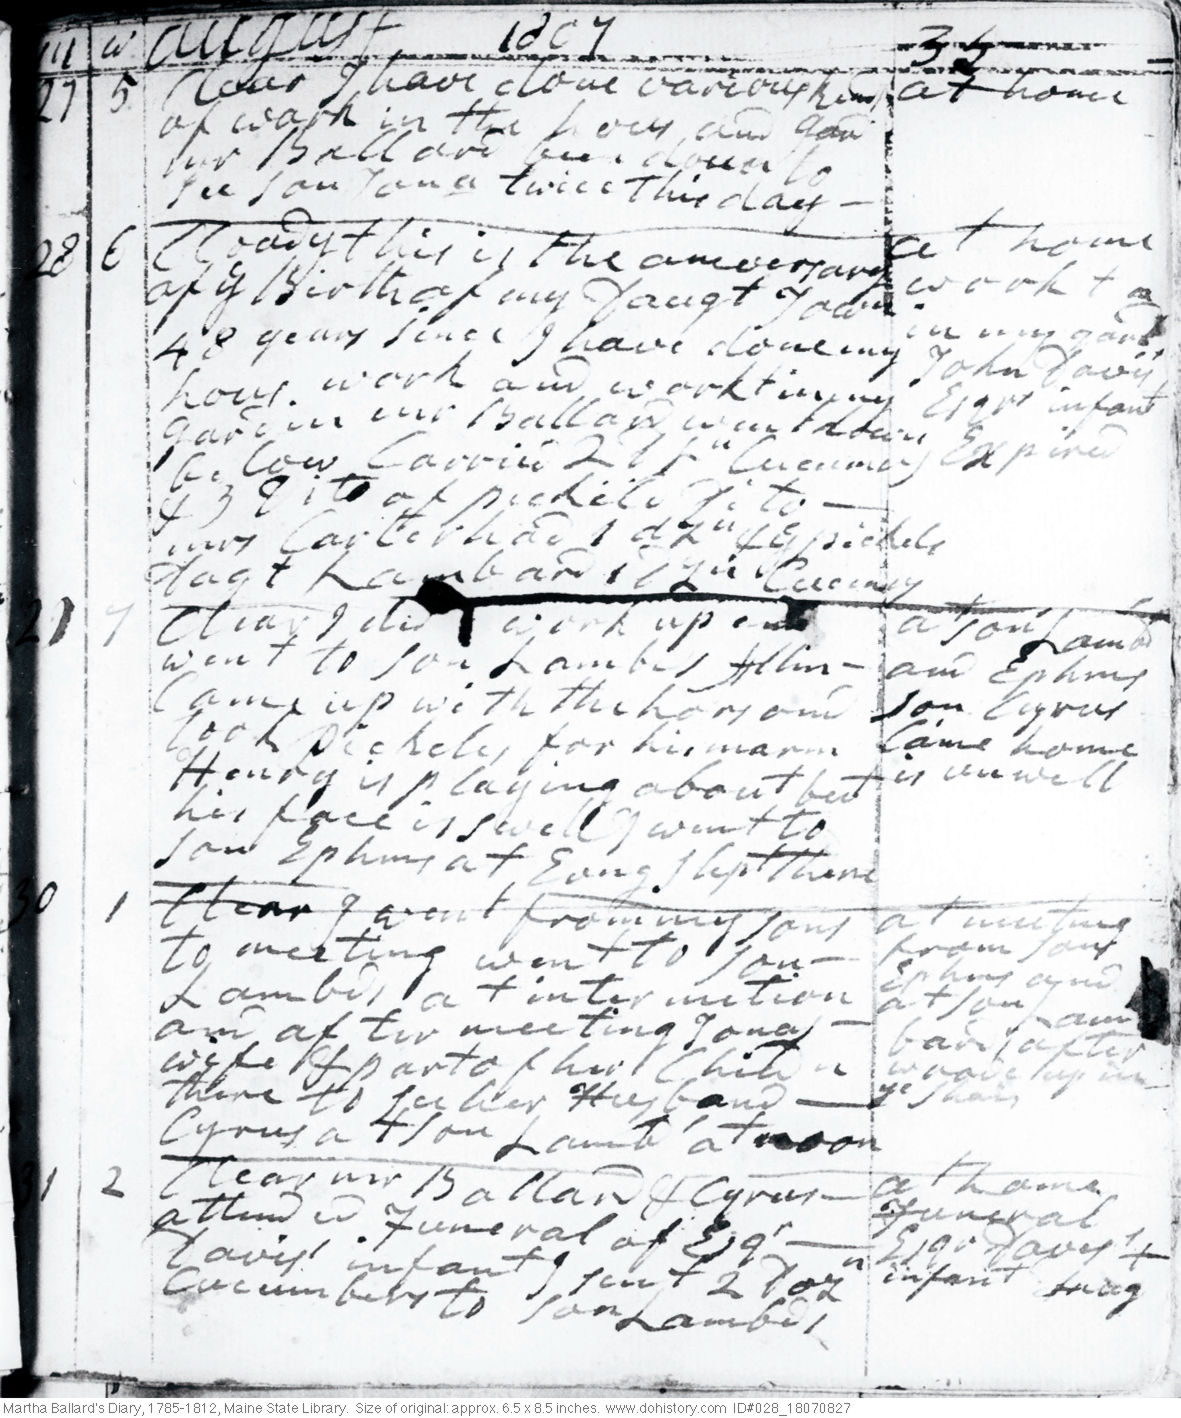 m w august 1807 34
27 5 Clear I have done various kinds at home
of work in the hous and gard
mr Ballard been down to
see son Jona twice this day –
28 6 Cloady this is the aniversary at home
of ye Birth of my Daugt Jown workt
48 years since I have done my in my gard
hous work and workt in my John Davis
gardin mr Ballard went down Esqrs infant
be low Carried 2 Cucumbrs Expired
& 3 of pickils to –
mrs Carter had 1 dzn pickels
dagt Lambard Cucumrs
29 7 Clear I did work up and at son Lambd
went to son Lambds Allin – and Ephms
Came up with the hors and son Cyrus
took pickels for his marm Came home
Henry is playing about but is unwell
his face is swell I went to
son Ephms at Evng slept there
30 1 Clear I went from my sons at meeting
to meeting went to son – from sons
Lambds at intermition Ephms and
and after meeting Jonas – at son Lam
wife & part of her Childn bards after
there to see her Husband – ye
Cyrus at son Lambd at noon
31 2 Clear mr Ballard & Cyrus – at home
attend'd Funeral of Esqr – Funeral
Davis' infant I sent 2 Dozn Esqr Davis'
Cucumbers to son Lambds infant
Martha Ballard's Diary, 1785-1812, Maine State Library. Size of original: approx. 6.5 x 8.5 inches. www.dohistory.com ID#028_18070827